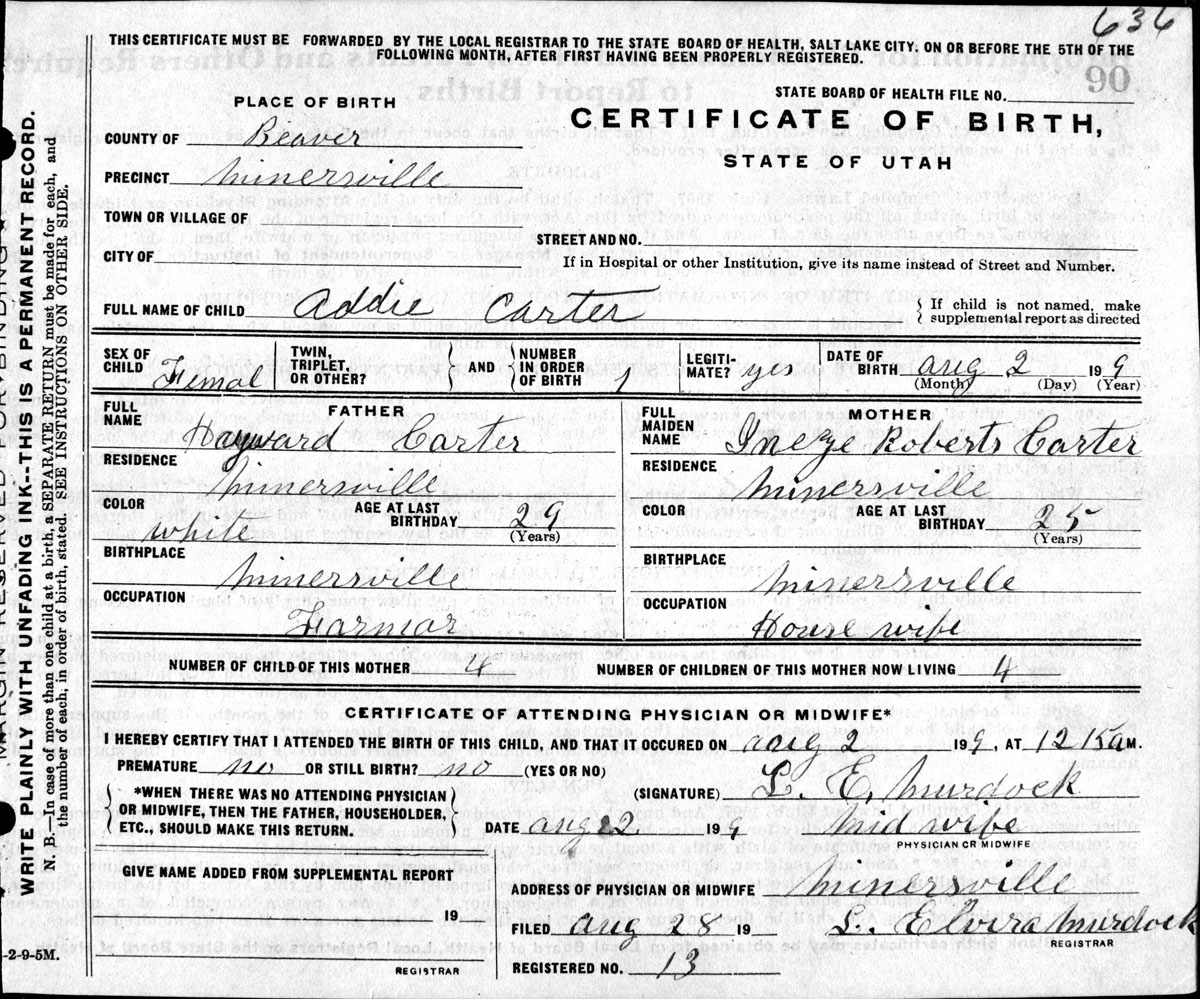 636
THIS CERTIFICATE MUST BE FORWARDED BY THE LOCAL REGISTRAR TO THE STATE BOARD OF HEALTH, SALT LAKE CITY, ON OR BEFORE THE 5TH OF THE
FOLLOWING MONTH, AFTER FIRST HAVING BEEN PROPERLY REGISTERED.
90
STATE BOARD OF HEALTH FILE NO.
PLACE OF BIRTH
CERTIFICATE OF BIRTH,
STATE OF UTAH
COUNTY OF Beaver
PRECINCT Minersville
TOWN OR VILLAGE OF
STREET AND NO.
CITY OF
If in Hospital or other Institution, give its name instead of Street and Number.
FULL NAME OF CHILD Addie Carter { If child is not named, make
supplemental report as directed
SEX OF CHILD Femal TWIN, TRIPLET, OR OTHER? } AND { NUMBER IN ORDER OF BIRTH 1 LEGITI- MATE? yes DATE OF BIRTH aug 2 19 9
(Month) (Day) (Year)
FULL NAME FATHER Hayward Carter
RESIDENCE Minersville
COLOR white AGE AT LAST BIRTHDAY 29
(Years)
BIRTHPLACE Minersville
OCCUPATION Farmar
FULL MAIDEN NAME MOTHER Ineze Roberts Carter
RESIDENCE Minersville
COLOR AGE AT LAST BIRTHDAY 25
(Years)
BIRTHPLACE Minersville
OCCUPATION House wife
NUMBER OF CHILD OF THIS MOTHER 4 NUMBER OF CHILDREN OF THIS MOTHER NOW LIVING 4
CERTIFICATE OF ATTENDING PHYSICIAN OR MIDWIFE*
I HEREBY CERTIFY THAT I ATTENDED THE BIRTH OF THIS CHILD, AND THAT IT OCCURED ON aug 2 19 9, AT 12 15 a M.
PREMATURE no OR STILL BIRTH? no (YES OR NO)
(SIGNATURE) L. E. Murdock
{ *WHEN THERE WAS NO ATTENDING PHYSICIAN
OR MIDWIFE, THEN THE FATHER, HOUSEHOLDER,
ETC., SHOULD MAKE THIS RETURN. }
DATE aug 2 19 9 Mid wife
PHYSICIAN OR MIDWIFE
GIVE NAME ADDED FROM SUPPLEMENTAL REPORT
19
REGISTRAR
ADDRESS OF PHYSICIAN OR MIDWIFE Minersville
FILED aug 28 19 L. Elvira Murdock
REGISTRAR
REGISTERED NO. 13
WRITE PLAINLY WITH UNFADING INK--THIS IS A PERMANENT RECORD.
N. B.—In case of more than one child at a birth, a SEPARATE RETURN must be made for each, and
the number of each, in order of birth, stated. SEE INSTRUCTIONS ON OTHER SIDE.
-2-9-5M.